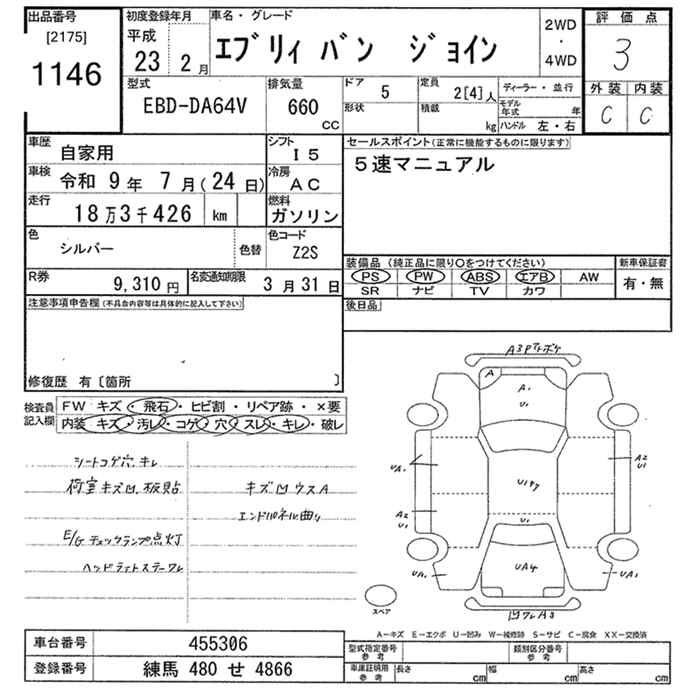 出品番号 初度登録年月 車名・グレード 2WD ・ 4WD 評価点
[2175] 平成
1146 23 2月 エブリィ バン ジョイン 3
型式 排気量 ドア 5 定員 2[4]人 ディーラー・並行 外装 内装
EBD-DA64V 660 cc 形状 積載 kg モデル年式 年 C C
ハンドル 左・右
車歴 自家用 シフト I5 セールスポイント(正常に機能するものに限ります)
車検 令和 9年 7月(24日) 冷房 AC 5速マニュアル
走行 18万3千426 km 燃料 ガソリン
色 シルバー 色替 色コード Z2S
装備品(純正品に限り○をつけてください) 新車保証書
R券 9,310円 名変通知期限 3月31日 PS PW ABS エアB AW 有・無
SR ナビ TV カワ
注意事項申告欄(不具合内容等は具体的に記入して下さい) 後日品
修復歴 有〔箇所 〕
検査員記入欄 FW キズ・飛石・ヒビ割・リペア跡・×要
内装 キズ・汚レ・コゲ・穴・スレ・キレ・破レ
シートコゲ穴キレ
荷室キズ凹,板貼 キズ凹ウスA
エンドパネル曲り
E/Gチェックランプ点灯
ヘッドライトステーワレ
A
A1
U1
UA1
A2
U1
A2
U1
U1
UA4
UA1
UA1
スペア
A-キズ E-エクボ U-凹み W-補修跡 S-サビ C-腐食 XX-交換済
車台番号 455306 型式指定番号 参考 類別区分番号 参考
登録番号 練馬 480 せ 4866 車庫証明用 参考 長さ cm 幅 cm 高さ cm